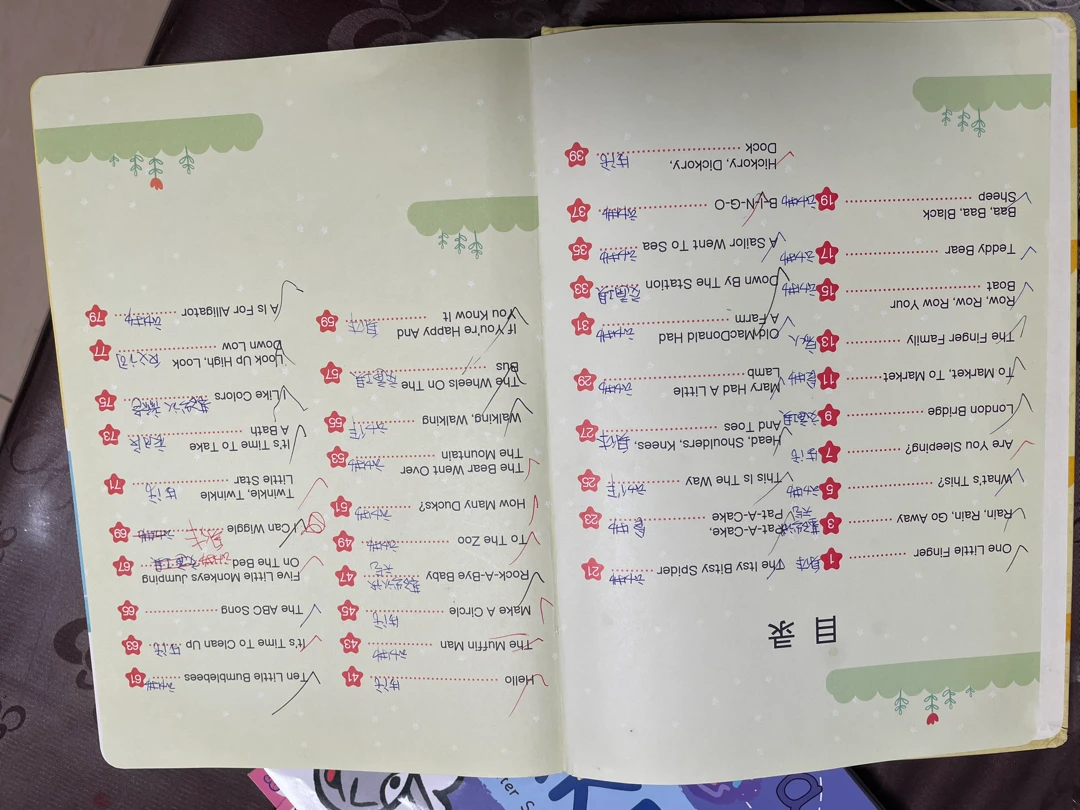 目录
One Little Finger 1 身体
Rain, Rain, Go Away 3
What's This? 5 动物
Are You Sleeping? 7 生活
London Bridge 9
To Market, To Market 11 食物
The Finger Family 13 家人
Row, Row, Row Your
Boat 15 动物
Teddy Bear 17 动物
Baa, Baa, Black
Sheep 19 动物
The Itsy Bitsy Spider 21 动物
Pat-A-Cake,
Pat-A-Cake 23 食物
This Is The Way 25 动作
Head, Shoulders, Knees,
And Toes 27 身体
Mary Had A Little
Lamb 29 动物
Old MacDonald Had
A Farm 31 动物
Down By The Station 33 交通工具
A Sailor Went To Sea 35 动物
B-I-N-G-O 37 动物
Hickory, Dickory,
Dock 39 生活
Hello 41 生活
The Muffin Man 43
Make A Circle 45 生活
Rock-A-Bye Baby 47
To The Zoo 49 动物
How Many Ducks? 51 动物
The Bear Went Over
The Mountain 53 动物
Walking, Walking 55 动作
The Wheels On The
Bus 57 交通工具
If You're Happy And
You Know It 59 身体
Ten Little Bumblebees 61 动物
It's Time To Clean Up 63 生活
The ABC Song 65
Five Little Monkeys Jumping
On The Bed 67
I Can Wiggle 69 身体
Twinkle, Twinkle
Little Star 71 生活
It's Time To Take
A Bath 73
I Like Colors 75
Look Up High, Look
Down Low 77 反义词
A Is For Alligator 79 动物